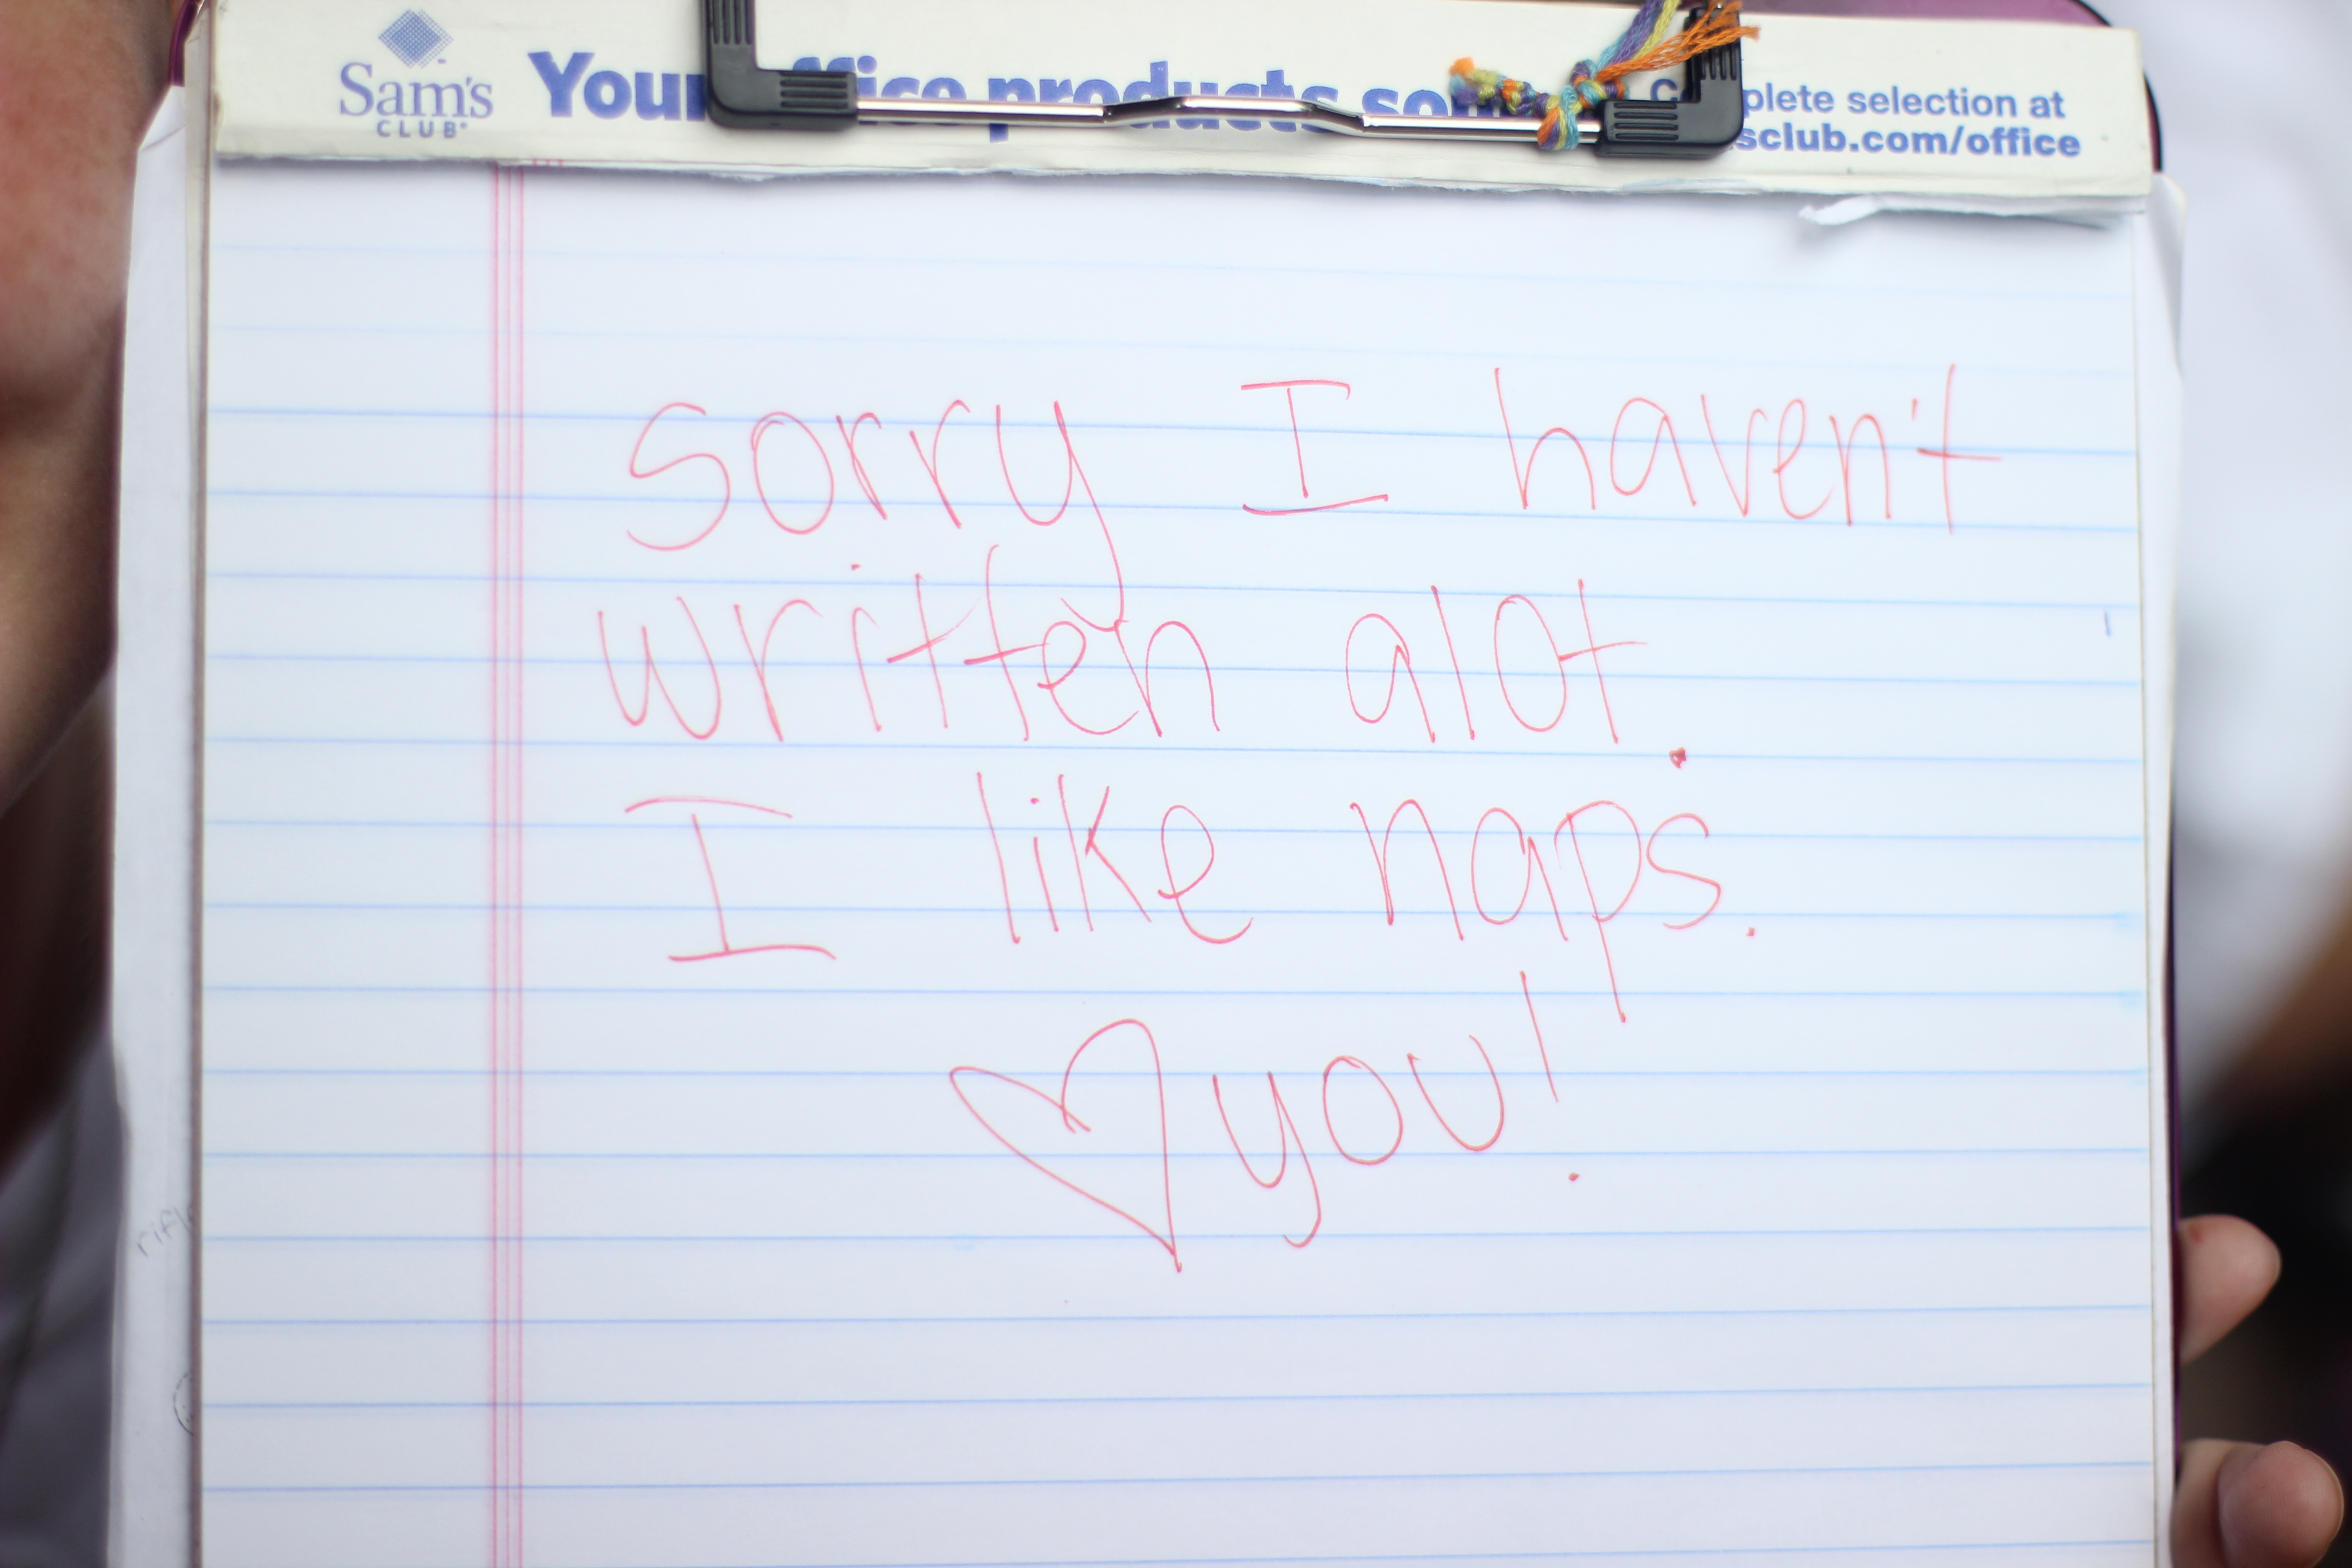 Sam's
CLUB
Your office products so
complete selection at
sclub.com/office
Sorry I haven't
written alot.
I like naps.
♡ you!